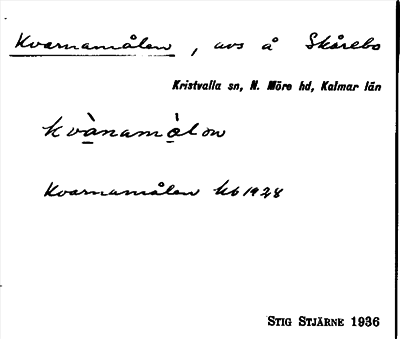 Kvarnamålen, avs å Skårebo
Kristvalla sn, N. Möre hd, Kalmar län
kvànamòlon
Kvarnamålen kb 1928
STIG STJÄRNE 1936